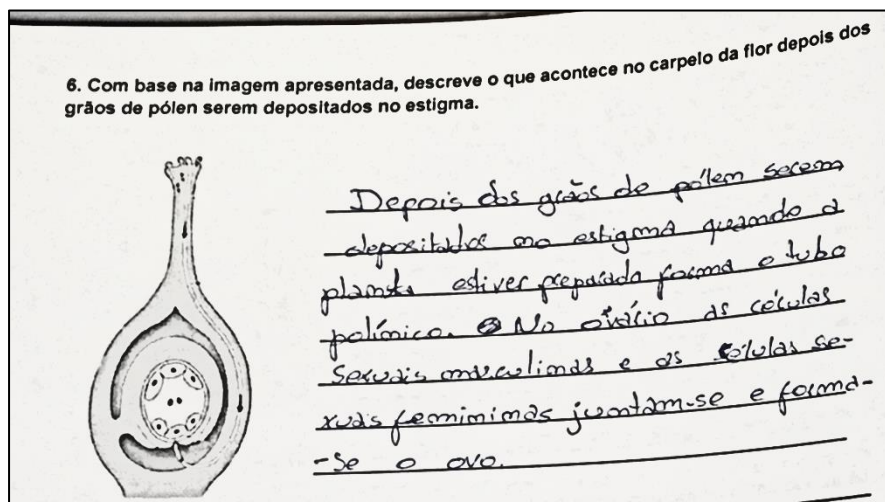 6. Com base na imagem apresentada, descreve o que acontece no carpelo da flor depois dos
grãos de pólen serem depositados no estigma.
Depois dos grãos de pólem serem
depositados no estigma quando a
planta estiver preparada forma o tubo
polínico. No ovário as células
sexuais masculinas e as células se-
xuais femininas juntam-se e forma-
-se o ovo.